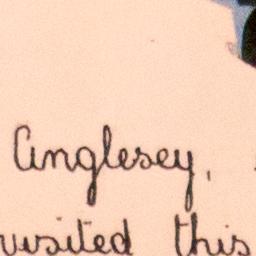 Anglesey,
visited this